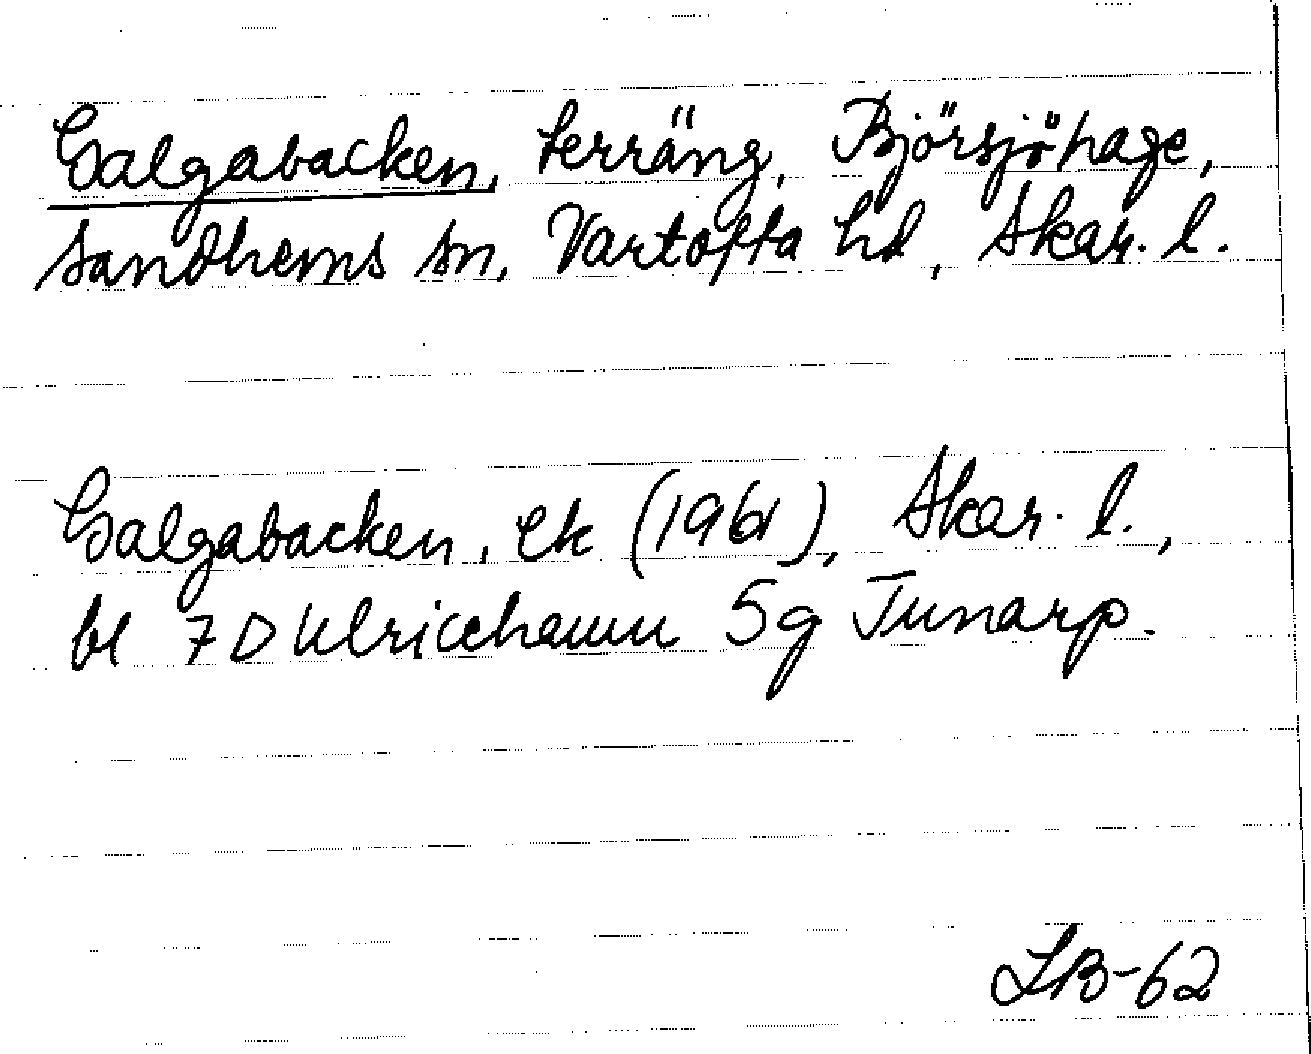 Galgabacken, terräng, Björsjöhage,
Sandhems sn, Vartofta hd, Skar. l.
Galgabacken, ek (1961), Skar. l.,
bl 7D Ulricehamn 5g Tunarp.
LB-62